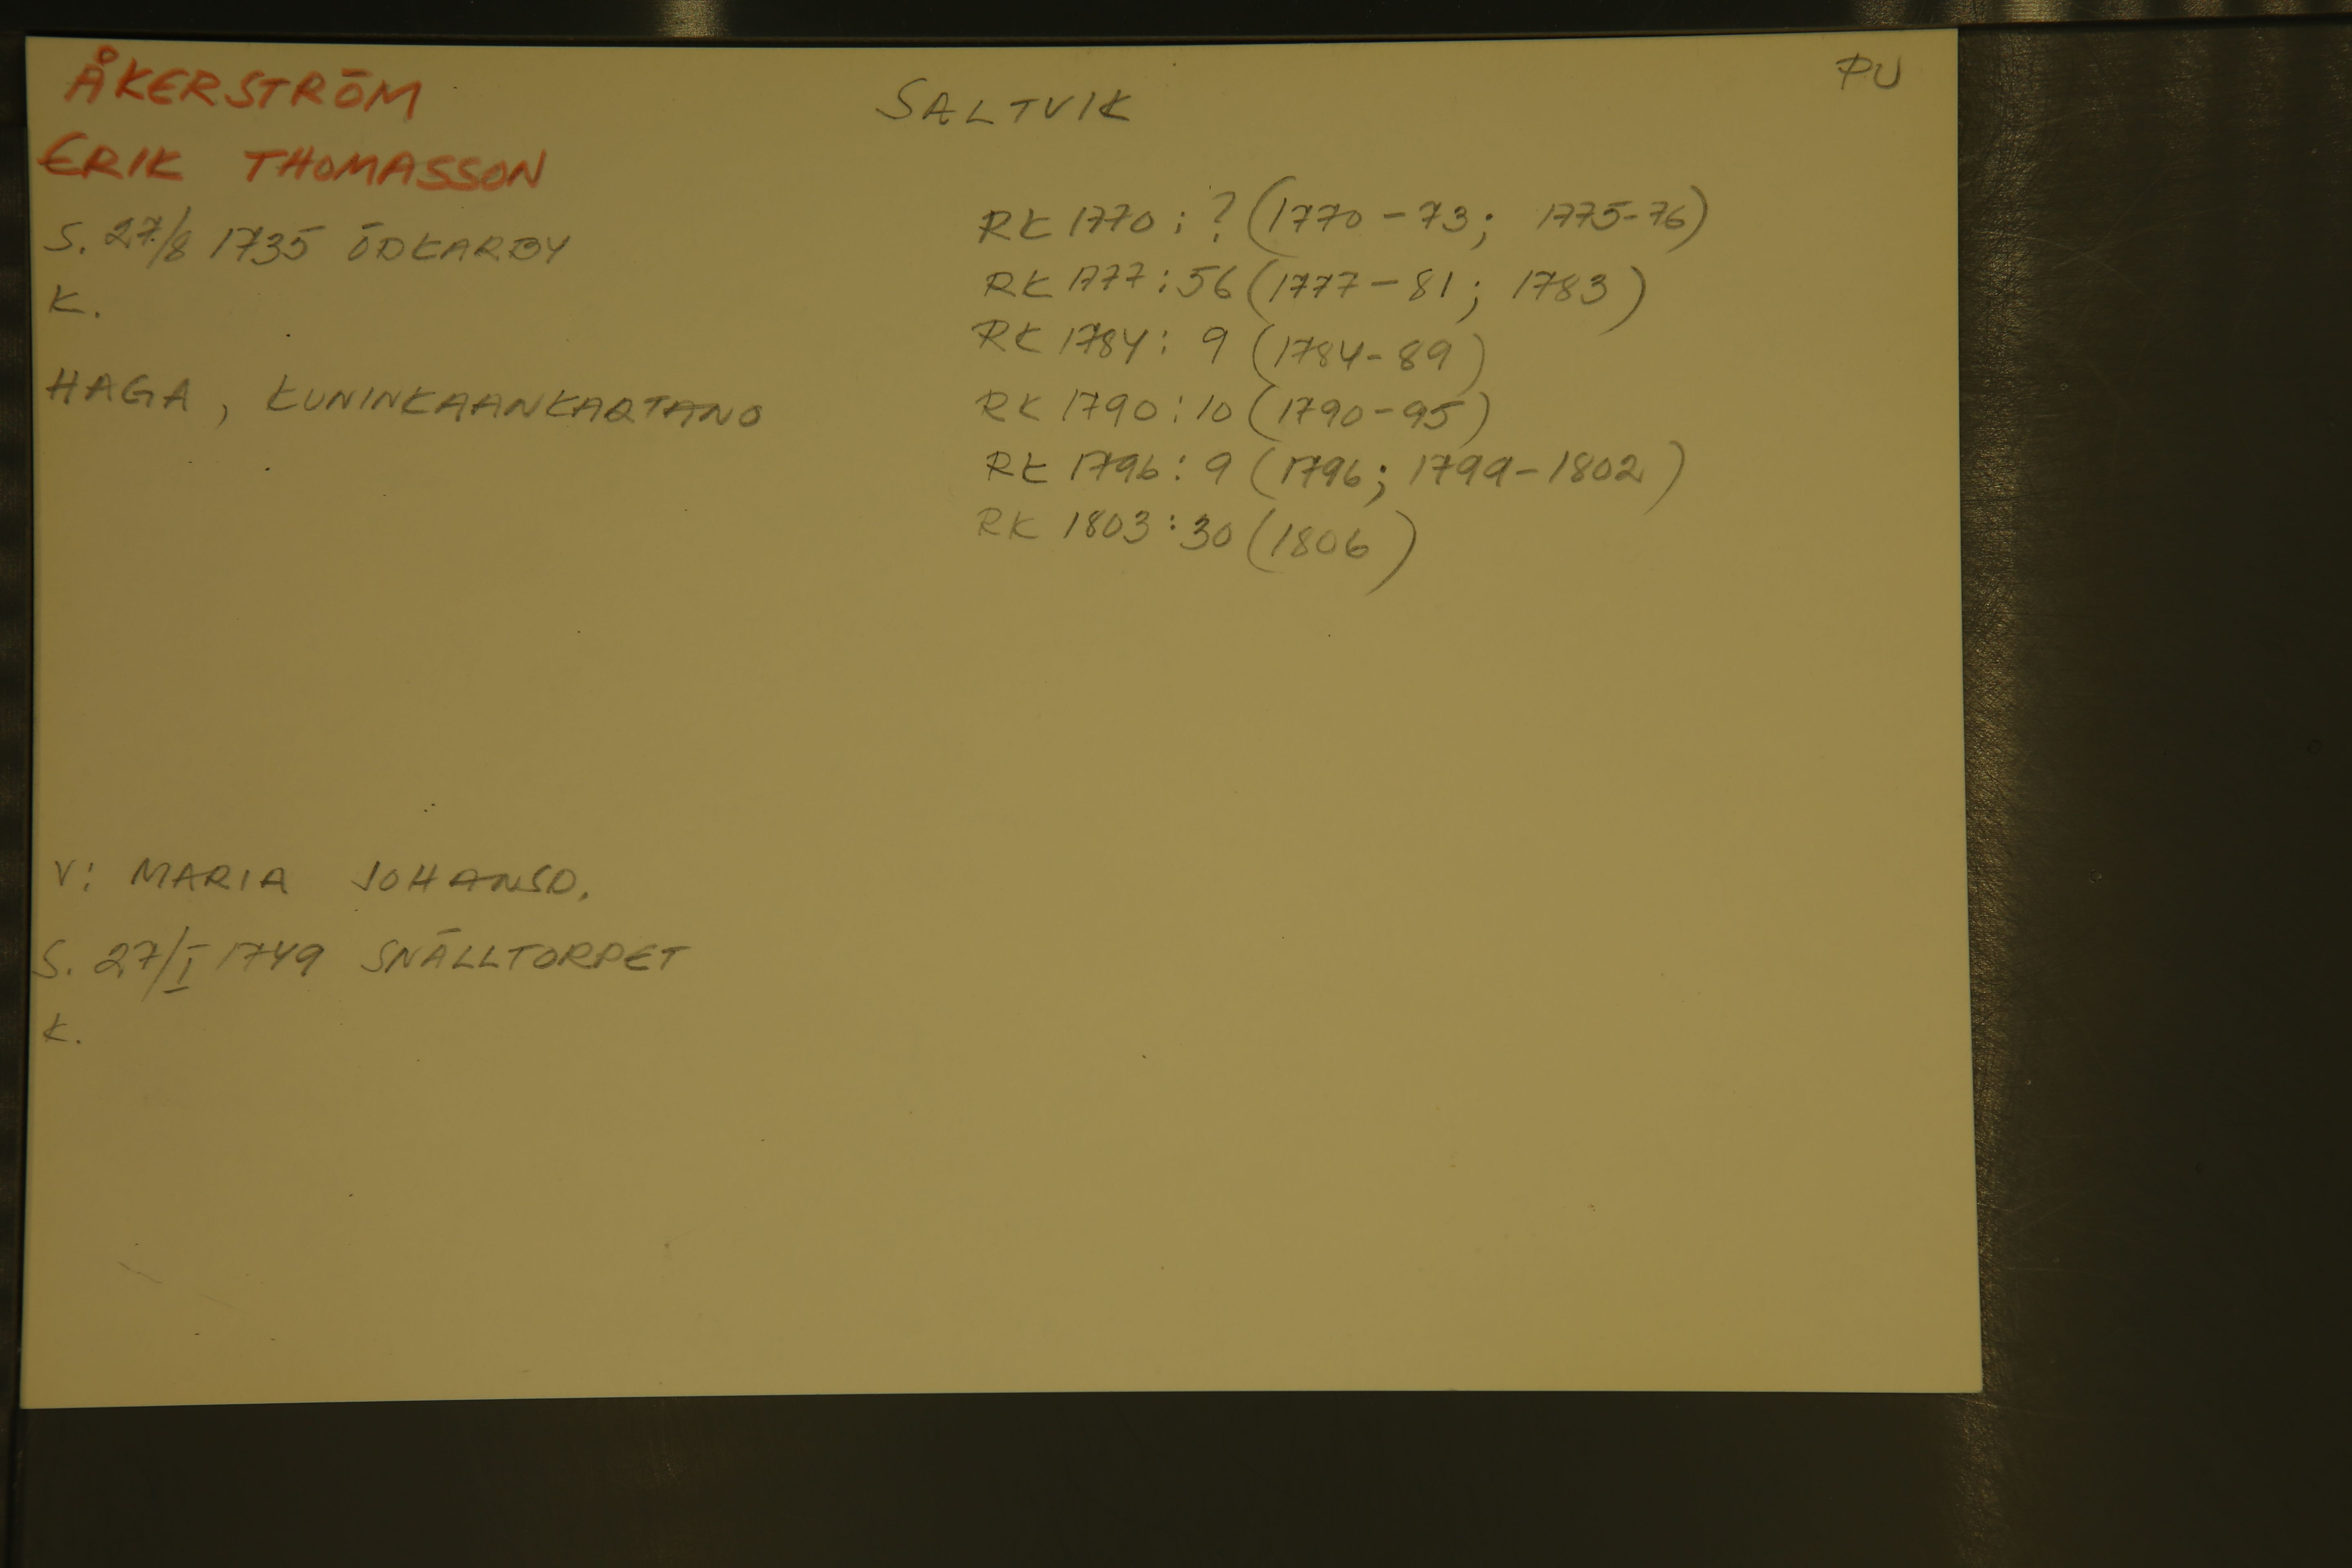 ÅKERSTRÖM
ERIK THOMASSON
S. 27/8 1735 ÖDKARBY
K.
HAGA, KUNINKAANKARTANO
V: MARIA JOHANSD.
S. 27/I 1749 SNÄLLTORPET
K.
SALTVIK
PU
RK 1770: ? (1770-73; 1775-76)
RK 1777: 56 (1777-81; 1783)
RK 1784: 9 (1784-89)
RK 1790: 10 (1790-95)
RK 1796: 9 (1796; 1799-1802)
RK 1803: 30 (1806)